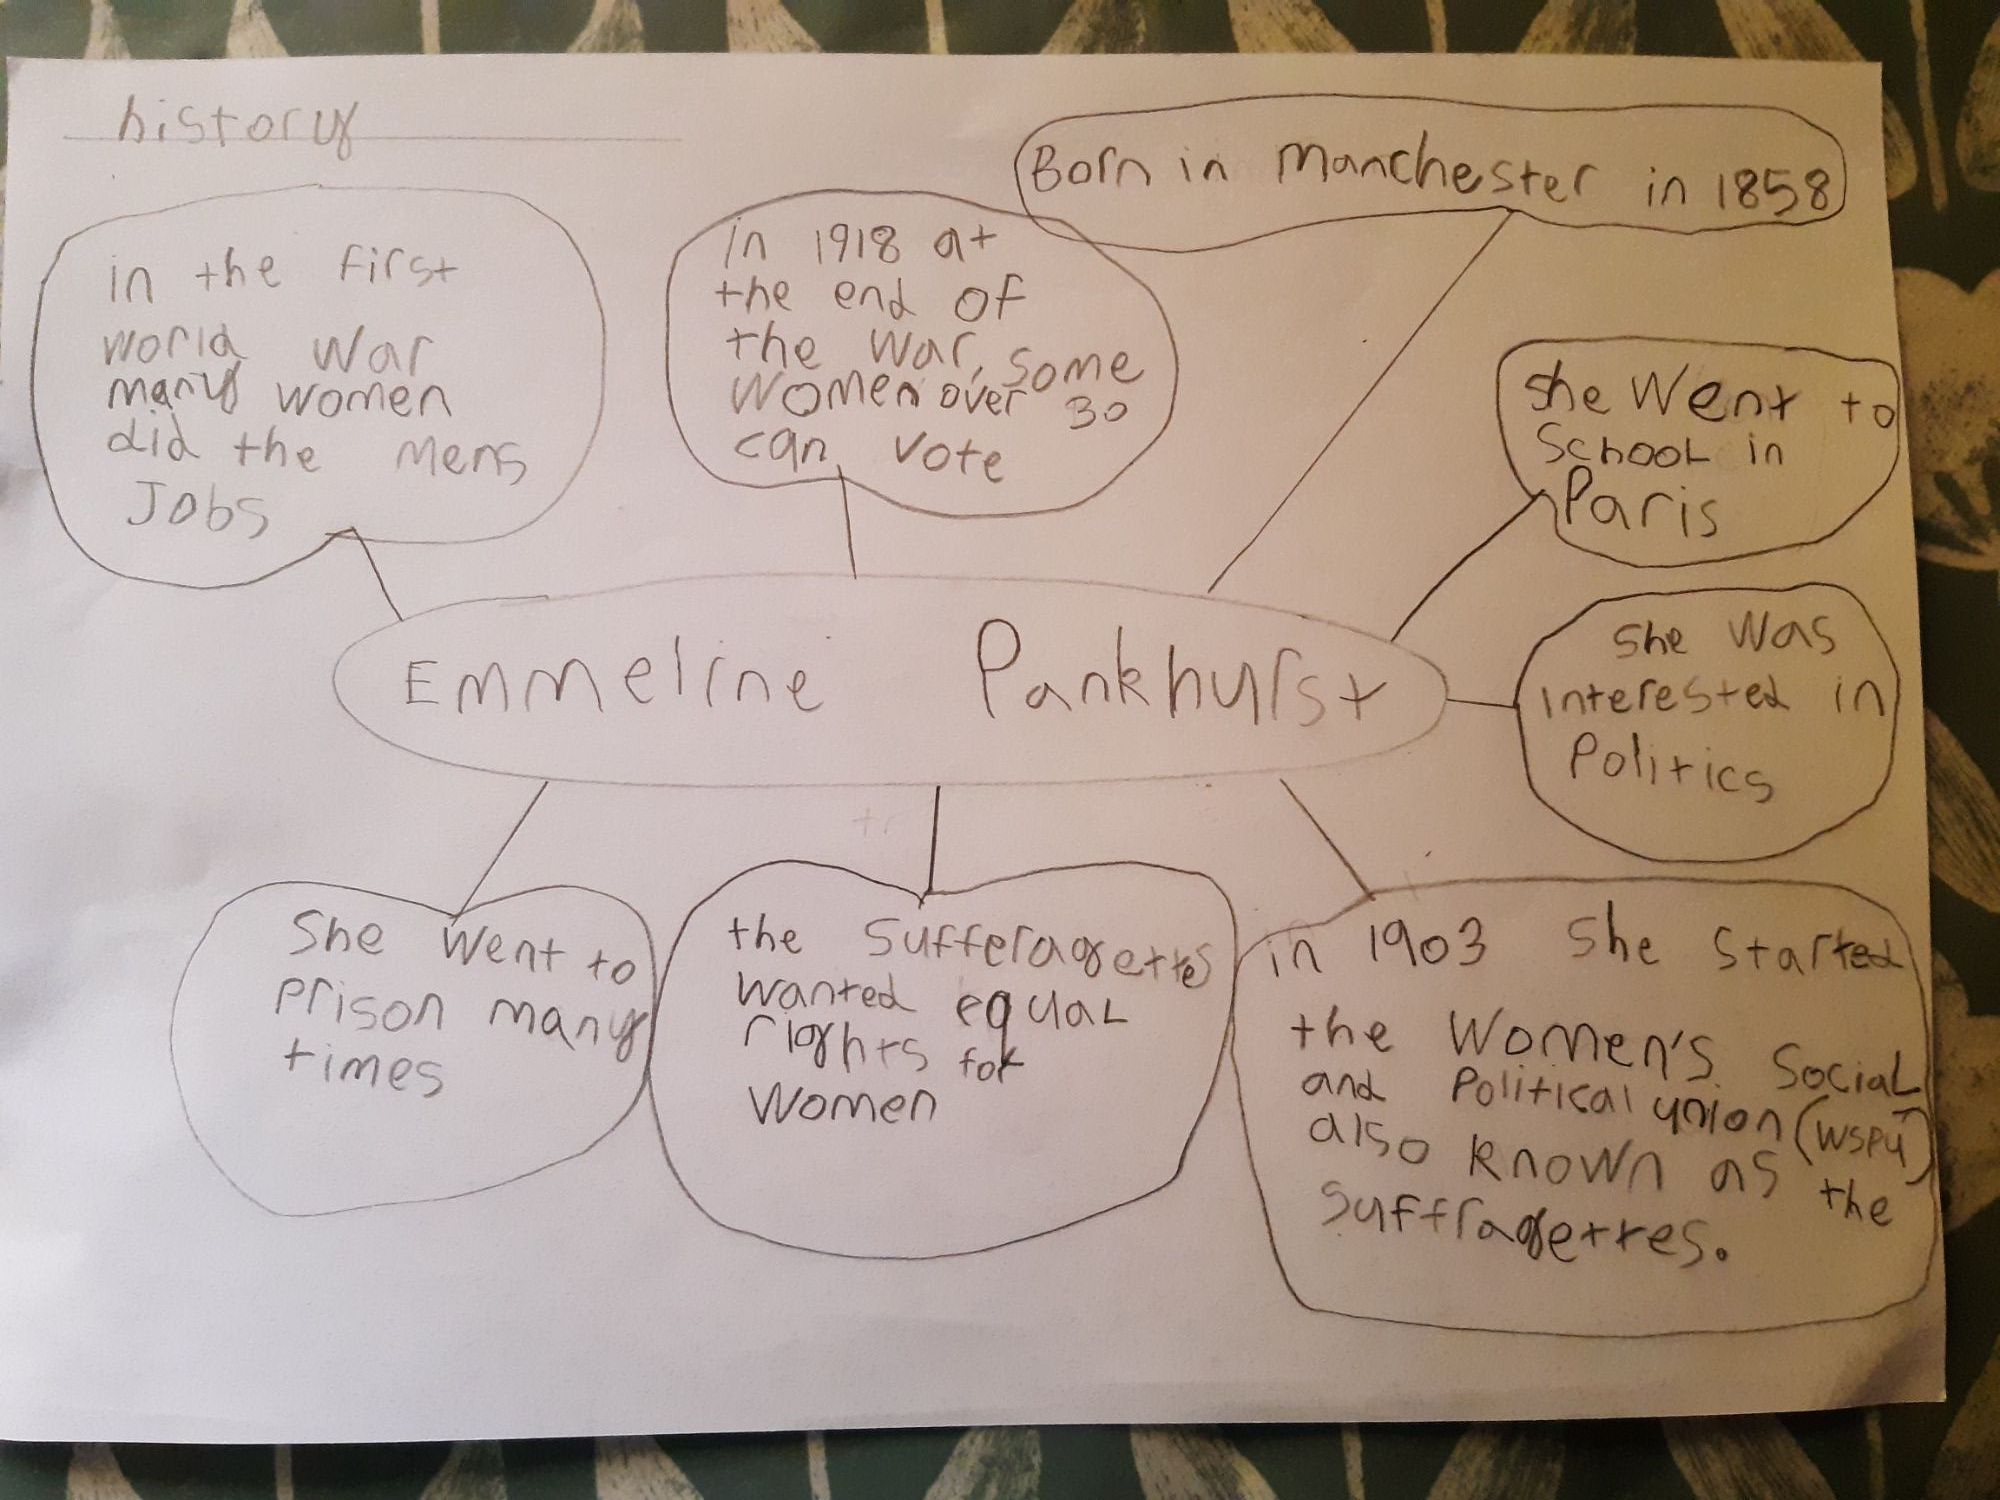 history
Born in Manchester in 1858
in the first
world war
many women
did the mens
Jobs
in 1918 at
the end of
the war, some
women over 30
can vote
She went to
School in
Paris
She was
interested in
Politics
Emmeline Pankhurst
She went to
prison many
times
the Sufferagettes
wanted equal
rights for
women
in 1903 she started
the Women's Social
and Political union (WSPU)
also known as the
Suffragettes.